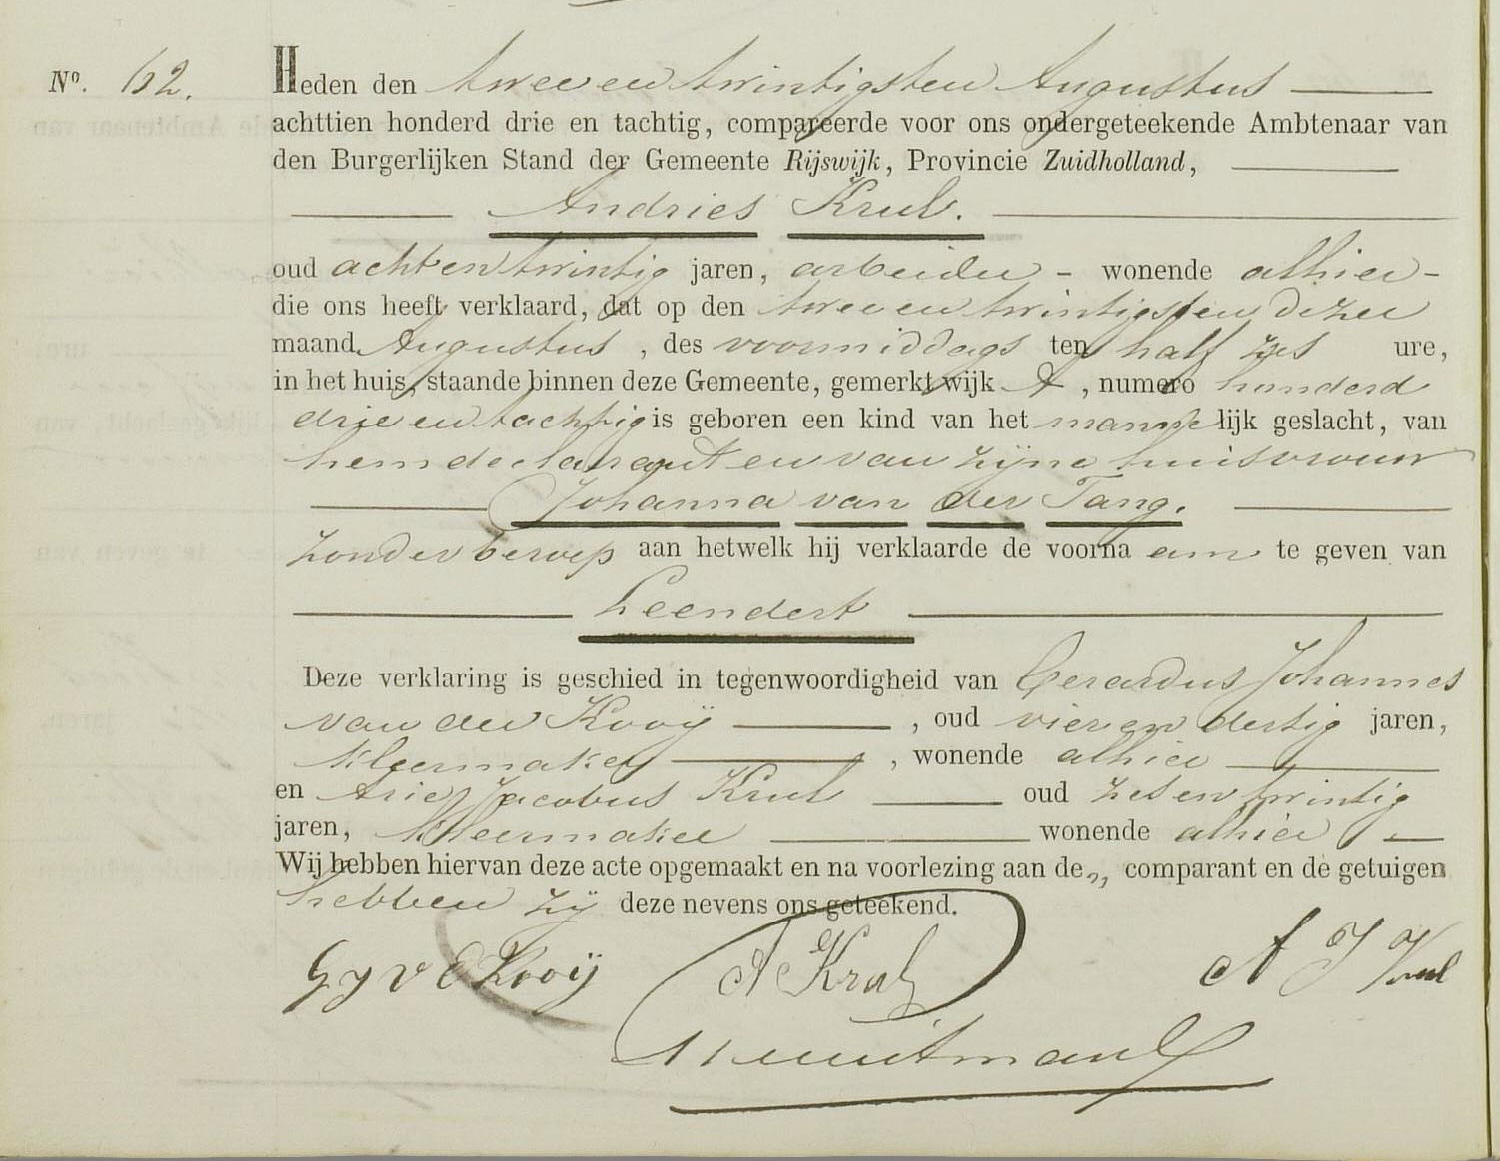 No. 62. Heden den twee en twintigsten Augustus
achttien honderd drie en tachtig, compareerde voor ons ondergeteekende Ambtenaar van
den Burgerlijken Stand der Gemeente Rijswijk, Provincie Zuidholland,
Andries Krul.
oud acht en twintig jaren, arbeider - wonende alhier -
die ons heeft verklaard, dat op den twee en twintigsten dezer
maand Augustus , des voormiddags ten half zes ure,
in het huis, staande binnen deze Gemeente, gemerkt wijk A , numero honderd
drie en tachtig is geboren een kind van het manne lijk geslacht, van
hem declarant en van zijne huisvrouw
Johanna van der Tang.
zonder beroep aan hetwelk hij verklaarde de voorna am te geven van
Leendert
Deze verklaring is geschied in tegenwoordigheid van Gerardus Johannes
van der Kooij , oud vier en dertig jaren,
kleermaker , wonende alhier
en Arie Jacobus Krul oud zes en twintig
jaren, kleermaker wonende alhier
Wij hebben hiervan deze acte opgemaakt en na voorlezing aan de „ comparant en de getuigen
hebben zij deze nevens ons geteekend.
G J v d Kooij A Krul A J Krul